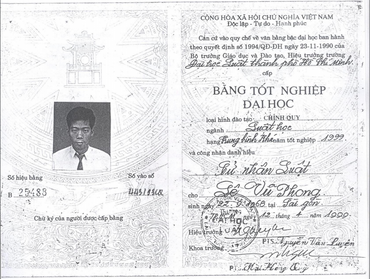 CỘNG HÒA XÃ HỘI CHỦ NGHĨA VIỆT NAM
Độc lập - Tự do - Hạnh phúc
Căn cứ vào quy chế về văn bằng bậc đại học ban hành
theo quyết định số 1994/QD-DH ngày 23-11-1990 của
Bộ trưởng Giáo dục và Đào tạo, Hiệu trưởng trường
Đại học Luật thành phố Hồ Chí Minh
cấp
BẰNG TỐT NGHIỆP
ĐẠI HỌC
loại hình đào tạo: CHÍNH QUY
ngành Luật học
hạng Trung bình khá năm tốt nghiệp 1999
và công nhận danh hiệu
Cử nhân Luật
cho Lê Vũ Phong
sinh ngày 22-9-1968 tại Sài gòn
ngày 12 tháng 4 năm 1999
Hiệu trưởng
Khoa trưởng
Số hiệu bằng
Số vào sổ
B 25483
Chữ ký của người được cấp bằng
PTS. Nguyễn Văn Luyện
ĐẠI HỌC